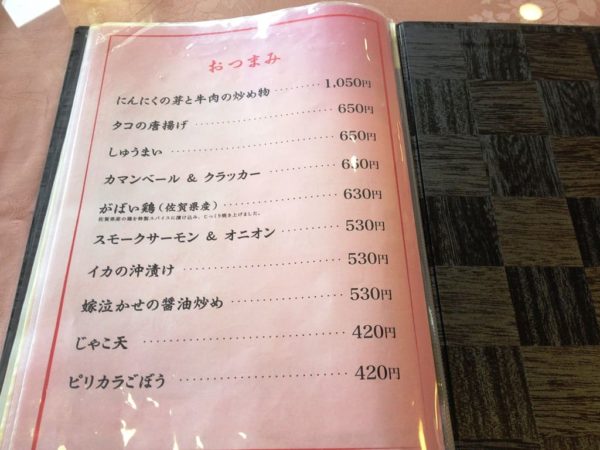 おつまみ
にんにくの芽と牛肉の炒め物 ········· 1,050円
タコの唐揚げ ························ 650円
しゅうまい ························ 650円
カマンベール & クラッカー ············ 630円
がばい鶏（佐賀県産） ················ 630円
佐賀県産の鶏を特製スパイスに漬け込み、じっくり焼き上げました。
スモークサーモン & オニオン ········· 530円
イカの沖漬け ························ 530円
嫁泣かせの醤油炒め ················ 530円
じゃこ天 ························ 420円
ピリカラごぼう ···················· 420円